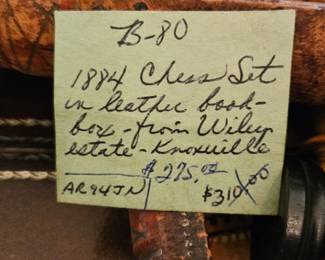 B-80
1884 Chess Set
in leather book-
box - from Wiley
estate - Knoxville
$275.00
AR94JN $310.00